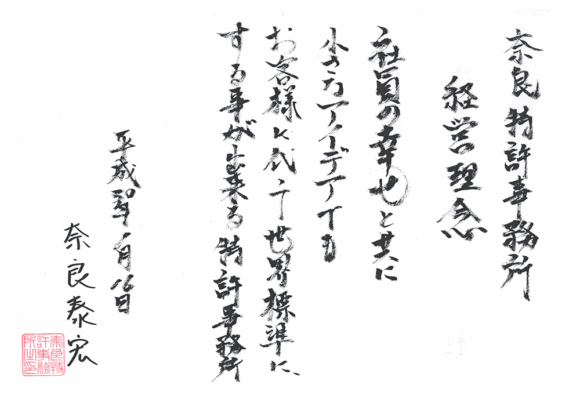 奈良特許事務所
経営理念
社員の幸せと共に
小さなアイデアでも
お客様に代って世界標準に、
する事が出来る特許事務所
平成30年1月16日
奈良泰宏
奈良特
許事務
所之印